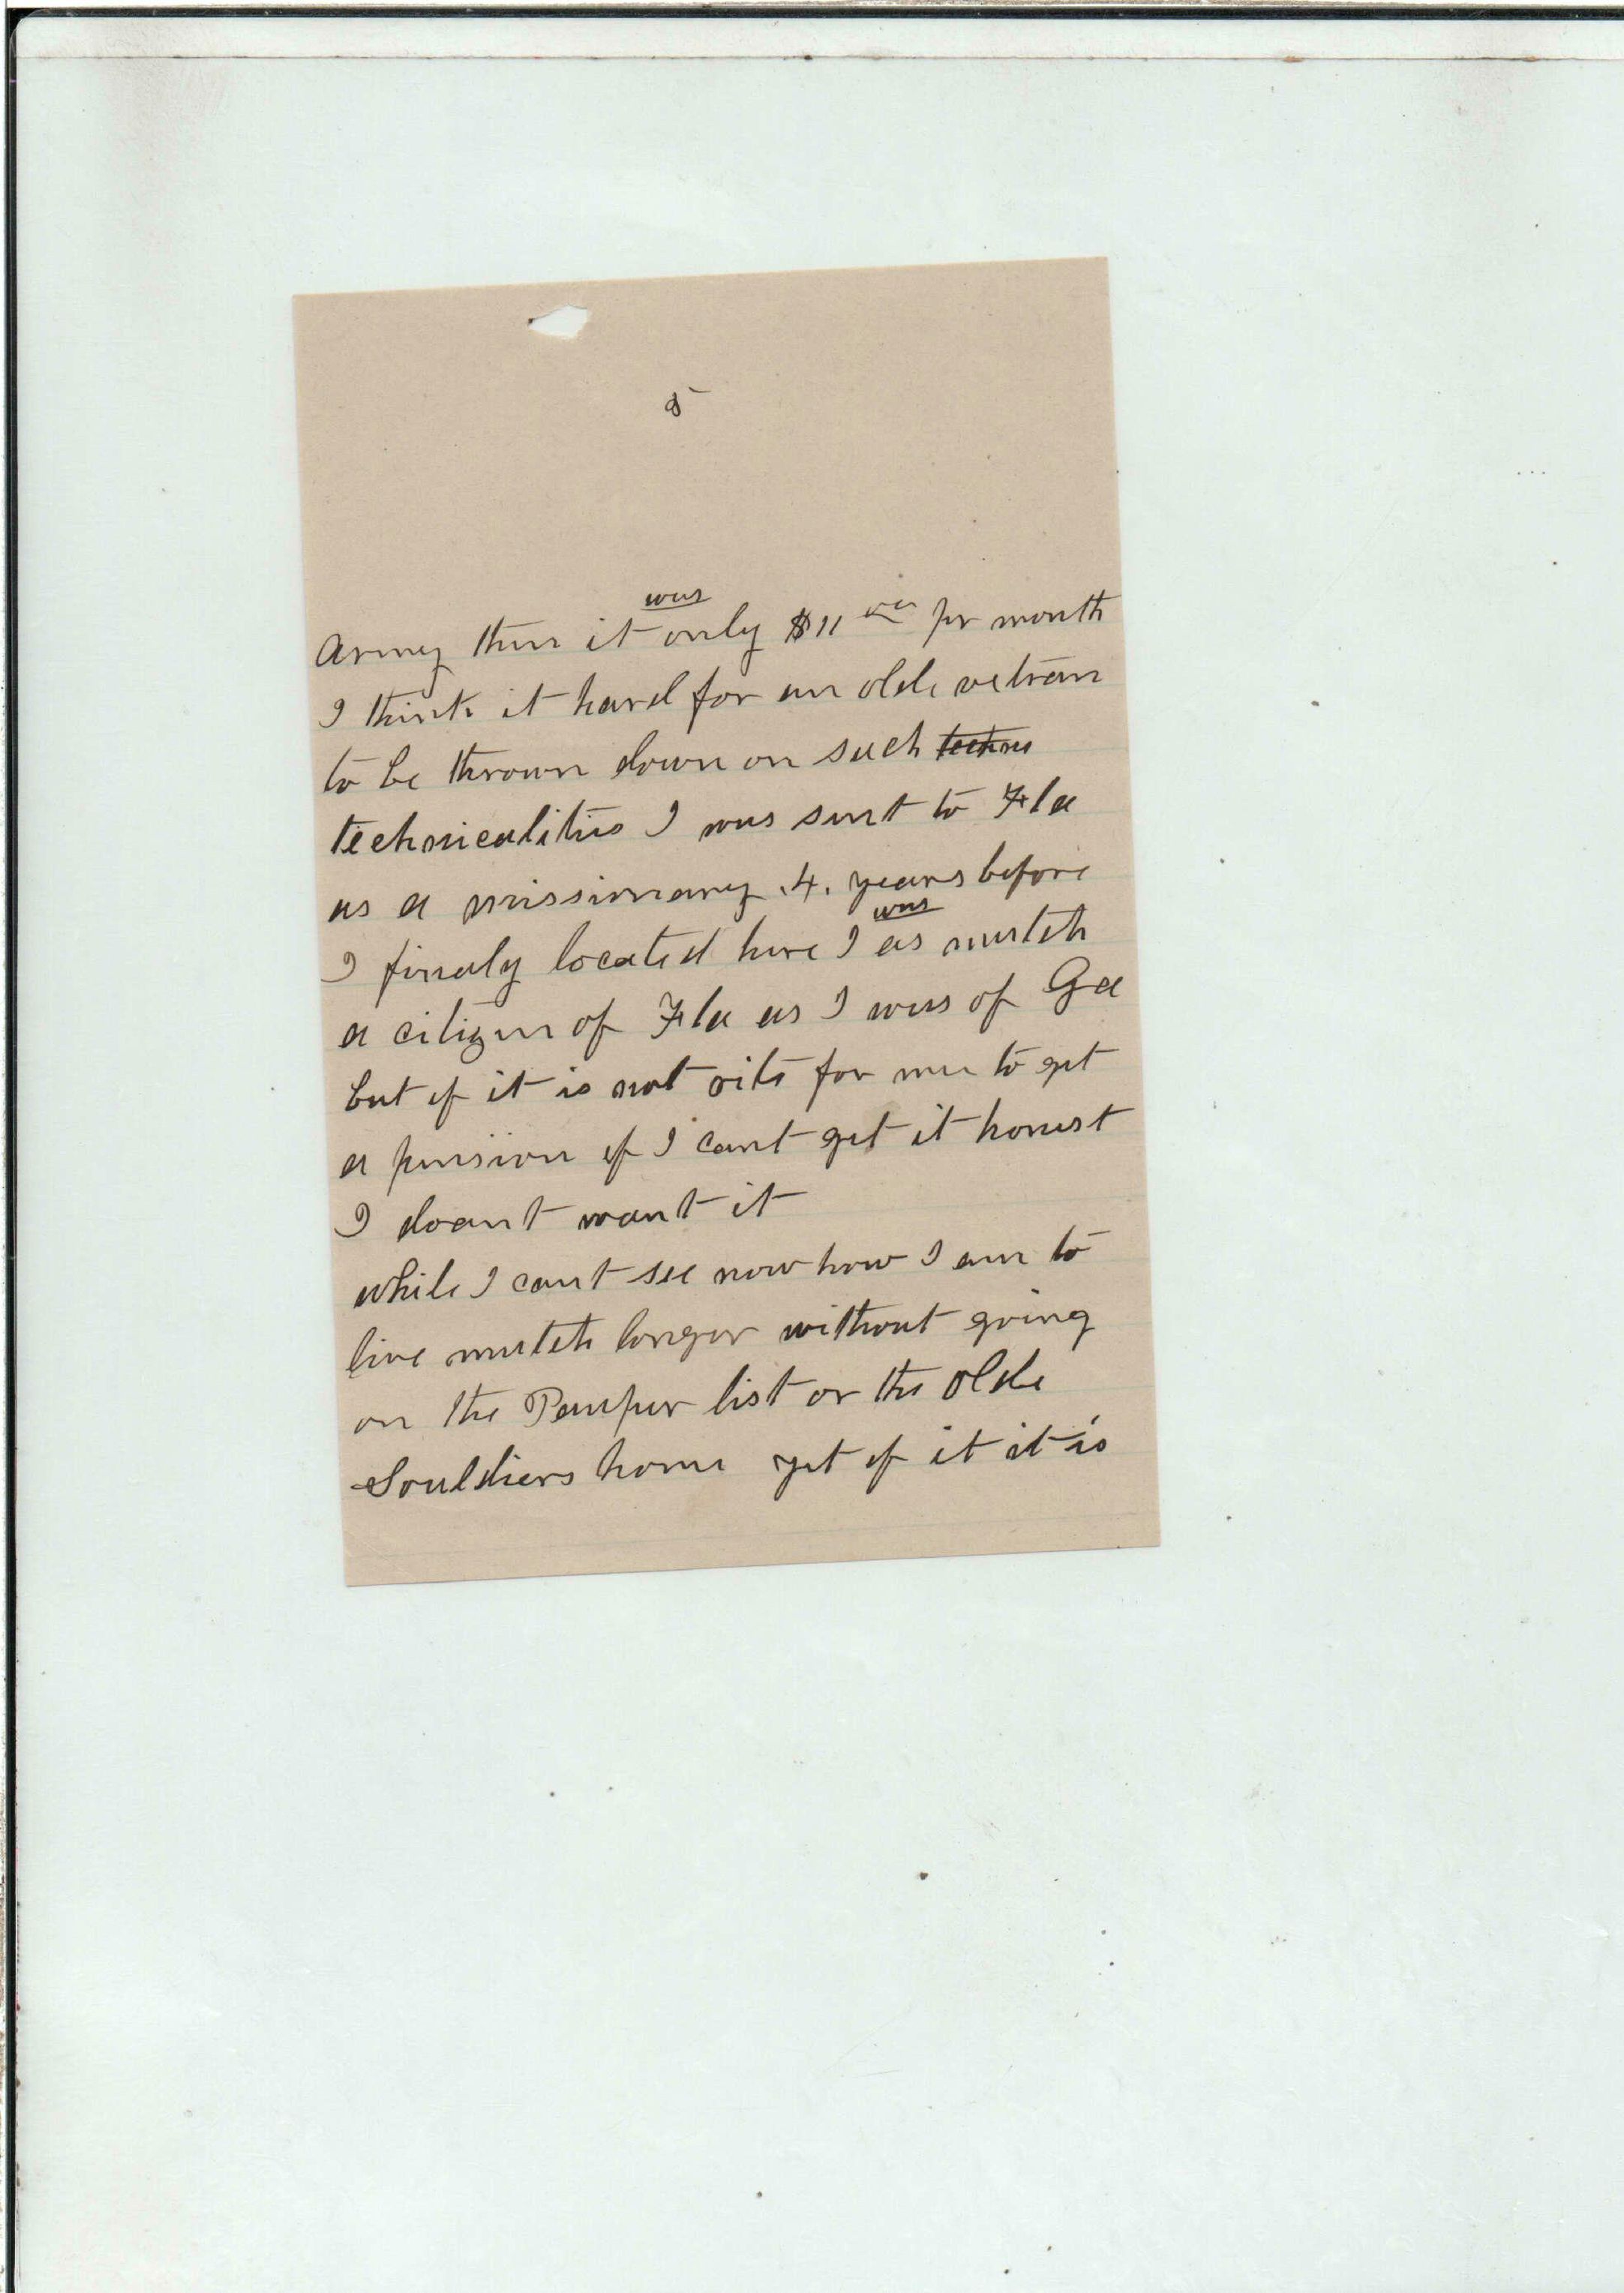 5
Army then it was only $11 00 pr month
I think it hard for an olde vetran
to be thrown down on such techni
technicalities I was sent to Fla
as a missionary .4. years before
I finaly located here I was as mutch
a citizen of Fla as I was of Ga
but if it is not rite for me to get
a pension if I cant get it honest
I doant want it
while I cant see now how I am to
live mutch longer without going
on the Pauper list or the olde
Souldiers home yet if it it is